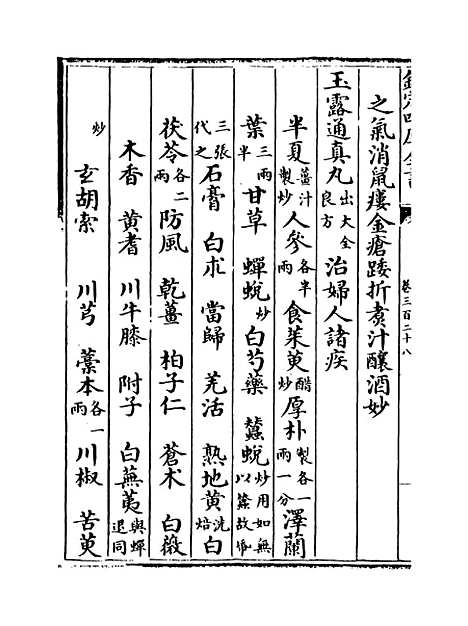 欽定四庫全書
卷三百二十八
之氣消鼠瘻金瘡踒折煑汁釀酒妙
玉露通真丸出大全良方治婦人諸疾
半夏薑汁製炒人參各半兩食茱萸醋炒厚朴製各一兩一分澤蘭
葉三兩半甘草蟬蛻炒白芍藥蠶蛻炒用如無以蠶故帋
三張代之石膏白朮當歸羌活熟地黄洗焙白
茯苓各二兩防風乾薑柏子仁蒼术白薇
木香黄耆川牛膝附子白蕪荑與蟬退同
炒玄胡索川芎藁本各一兩川椒苦萸